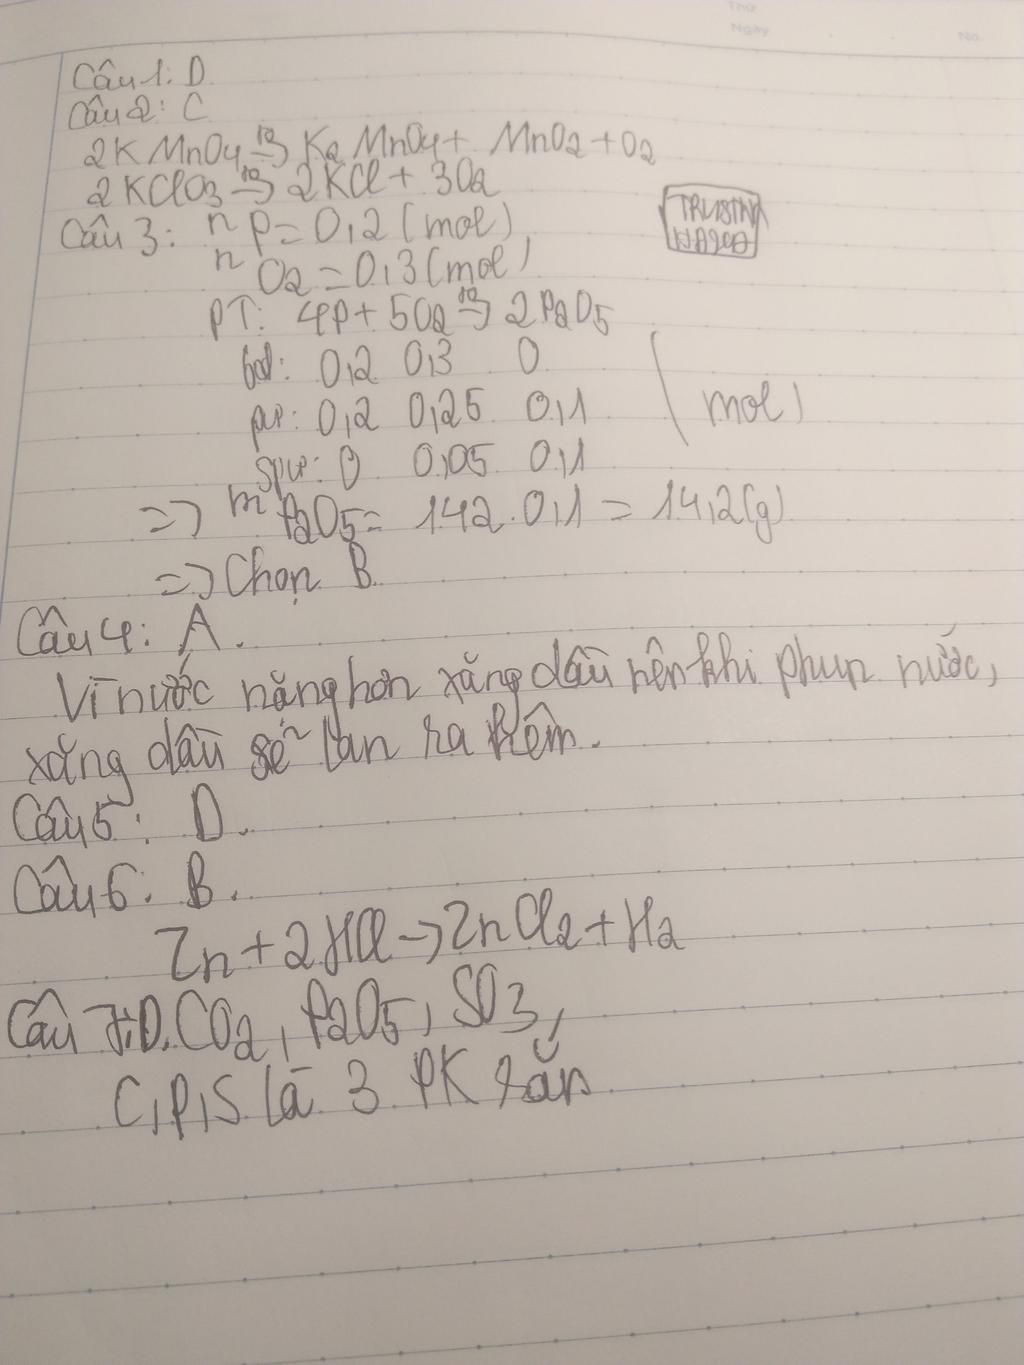 Thứ
Ngày
No.
Câu 1: D.
Câu 2: C
2KMnO4 t°→ K2MnO4 + MnO2 + O2
2KClO3 t°→ 2KCl + 3O2
Câu 3: nP = 0,2 (mol)
nO2 = 0,3 (mol)
PT: 4P + 5O2 t°→ 2P2O5
bđ: 0,2 0,3 0
pư: 0,2 0,25 0,1 (mol)
spư: 0 0,05 0,1
=> mP2O5 = 142.0,1 = 14,2(g)
=> Chọn B.
Câu 4: A.
Vì nước nặng hơn xăng dầu nên khi phun nước,
xăng dầu sẽ lan ra thêm.
Câu 5: D.
Câu 6: B.
Zn + 2HCl → ZnCl2 + H2
Câu 7: D. CO2, P2O5, SO3,
C, P, S là 3 PK rắn